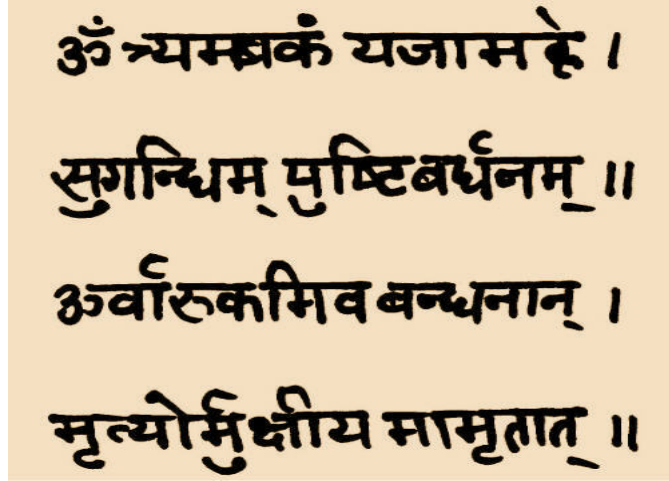 ॐ त्र्यमबकं यजामहे ।
सुगन्धिम् पुष्टिबर्धनम् ॥
ऊर्वारुकमिव बन्धनान् ।
मृत्योर्मुक्षीय मामृतात् ॥